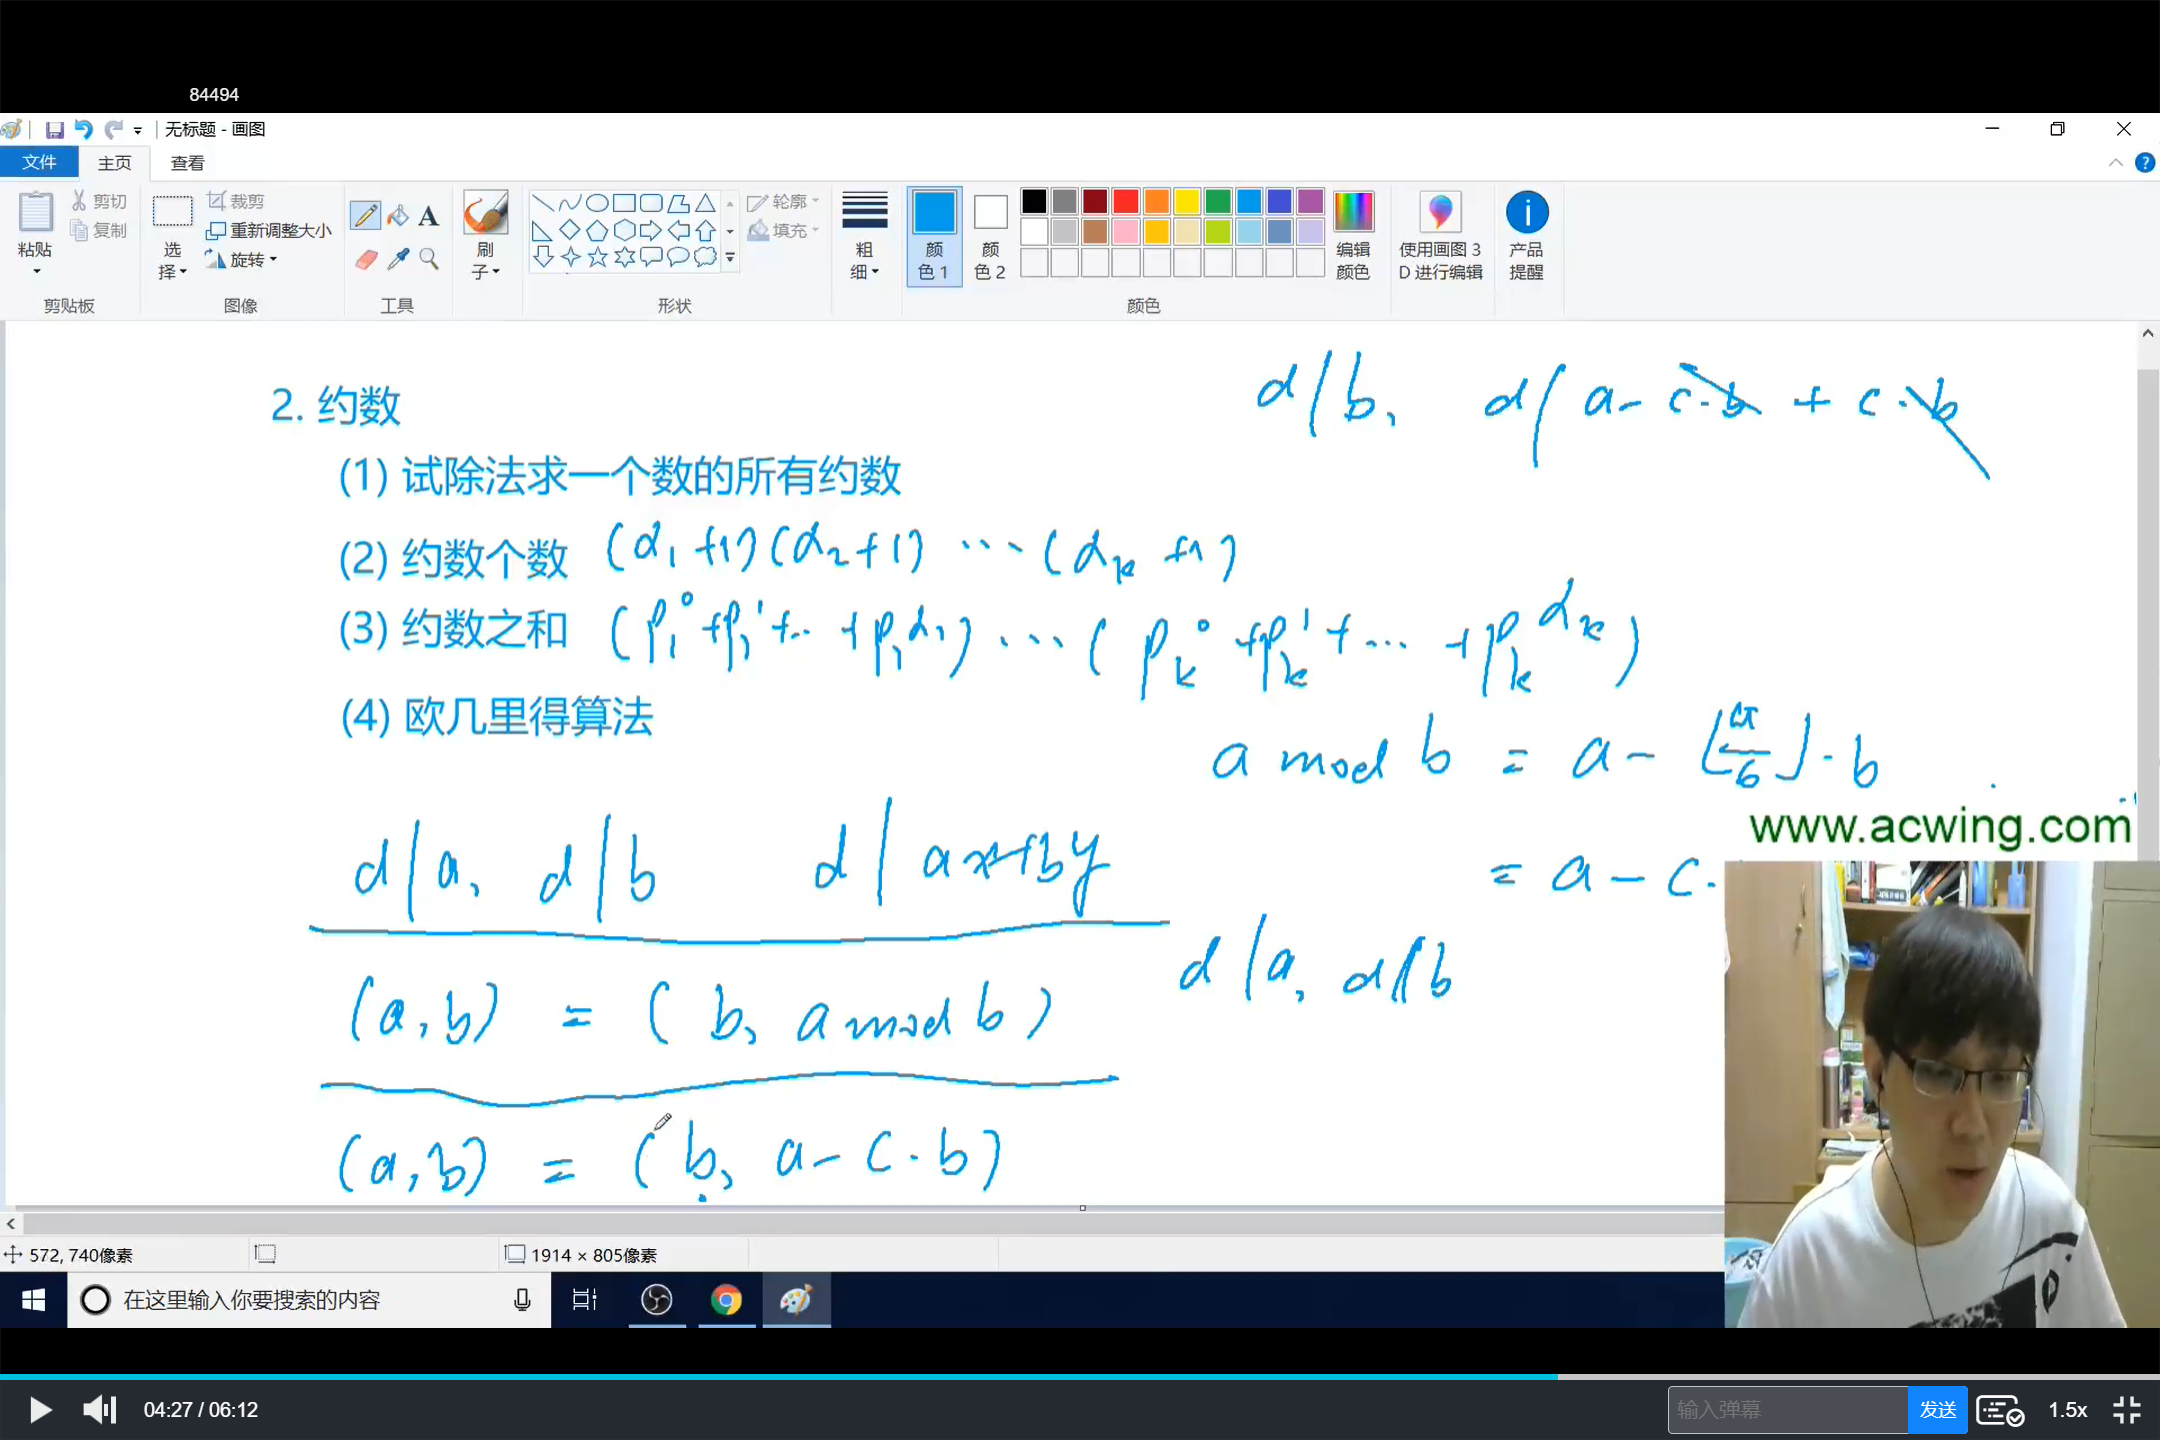 84494
无标题 - 画图
文件 主页 查看
粘贴 剪切 复制 剪贴板
选择 裁剪 重新调整大小 旋转 图像
A 工具
刷子
轮廓 填充 形状
粗细
颜色 1
颜色 2
编辑颜色
颜色
使用画图 3D 进行编辑
产品提醒
d|b, d|a-c·b+c·b
2. 约数
(1) 试除法求一个数的所有约数
(2) 约数个数 (α₁+1)(α₂+1)…(αₖ+1)
(3) 约数之和 (p₁⁰+p₁¹+…+p₁^α₁)…(pₖ⁰+pₖ¹+…+pₖ^αₖ)
(4) 欧几里得算法
a mod b = a-⌊a/b⌋·b
www.acwing.com
= a-c·
d|a, d|b d|ax+by
d|a, d|b
(a,b) = (b, a mod b)
(a,b) = (b, a-c·b)
572, 740像素 1914 × 805像素
在这里输入你要搜索的内容
04:27 / 06:12 输入弹幕 发送 1.5x